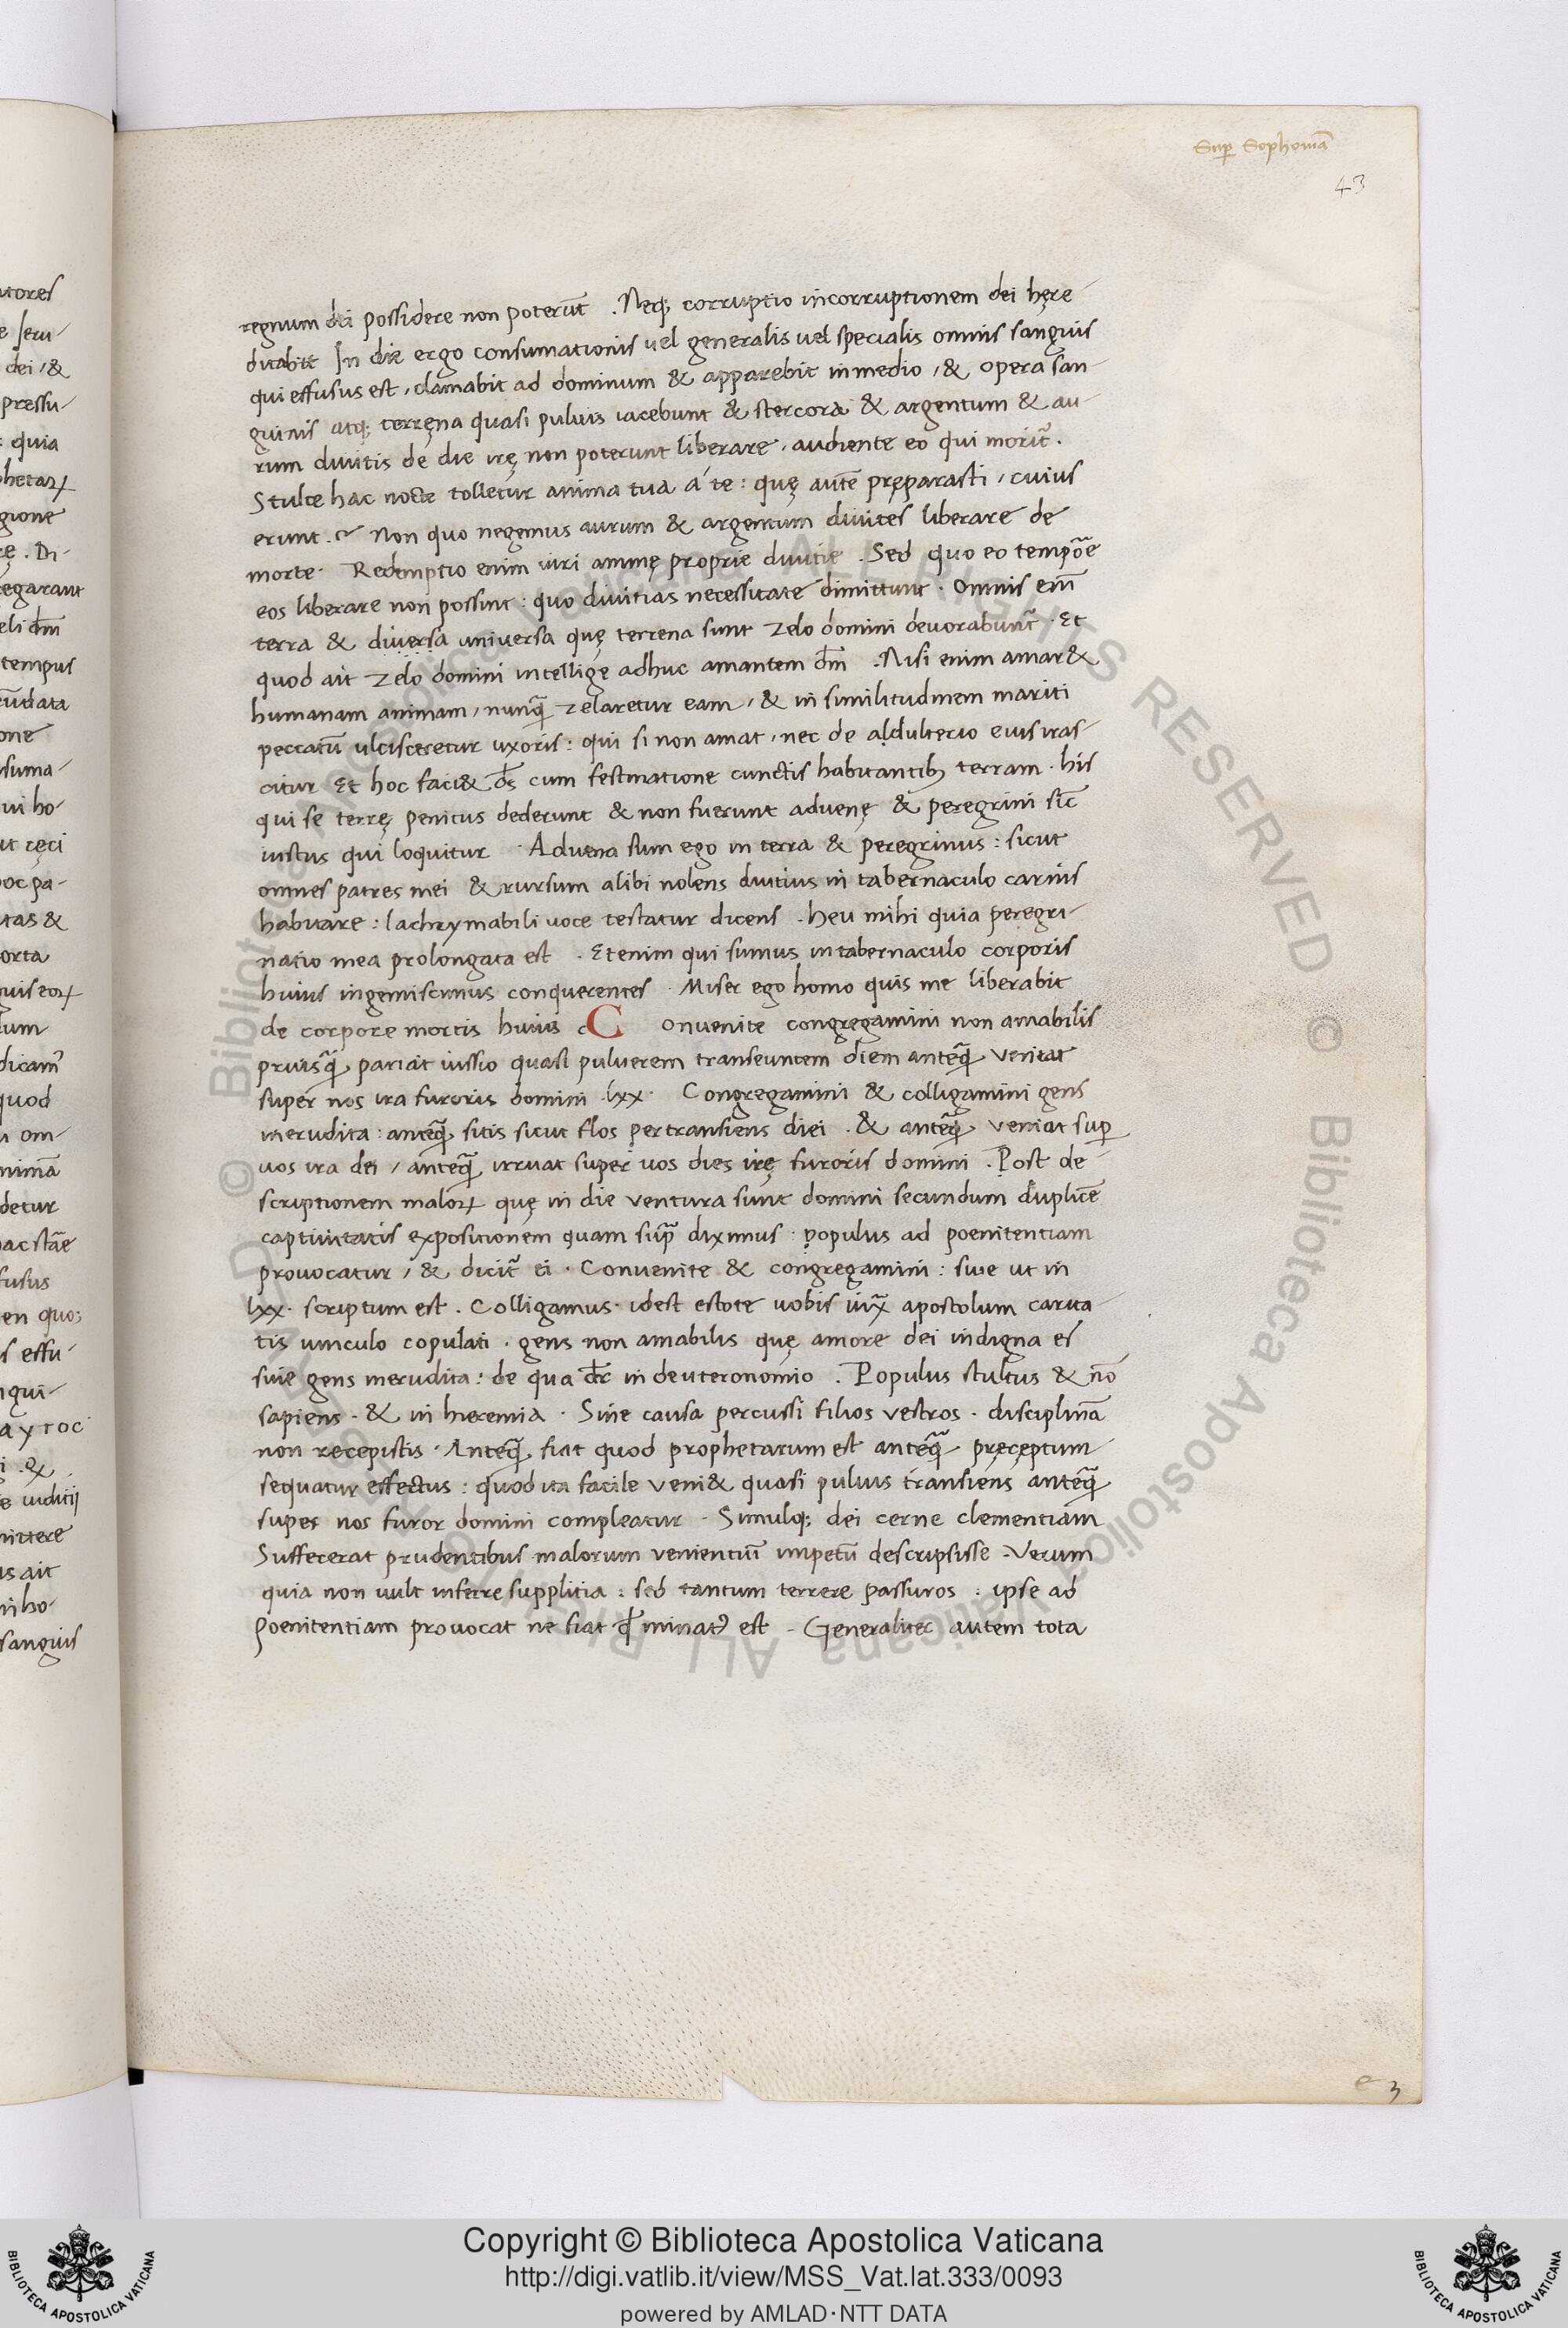 Sup̱ Sophoniā
43
regnum dei possidere non poterūt . Neq; corruptio incorruptionem dei hęre-
ditabit In die ergo consumationis uel generalis uel specialis omnis sanguis
qui effusus est, clamabit ad dominum & apparebit in medio, & opera san-
guinis atq; terręna quasi puluis iacebunt & stercora & argentum & au-
rum diuitis de die irę non poterunt liberare, audiente eo qui morit̄.
Stulte hac nocte tolletur anima tua á te: quę autē pręparasti, cuius
erunt. Non quo negemus aurum & argentum diuites liberare de
morte. Redemptio enim uiri animę proprie diuitie . Sed quo eo tempōe
eos liberare non possint: quo diuitias necessitate dimittunt. Omnis em̄
terra & diversa universa quę terrena sunt zelo domini devorabunt̄ . Et
quod ait zelo domini intellige adhuc amantem dm̄ . Nisi enim amar&
humanam animam, nunq̄ zelaretur eam, & in similitudinem mariti
peccatū ulcisceretur uxoris: qui si non amat, nec de aldulterio eius iras-
citur Et hoc faci& ds̄ cum festinatione cunctis habitantib; terram. his
qui se terrę penitus dederunt & non fuerunt advenę & peregrini sic̄
iustus qui loquitur . Advena sum ego in terra & peregrinus: sicut
omnes patres mei & rursum alibi nolens diutius in tabernaculo carnis
habitare: lachrymabili uoce testatur dicens . heu mihi quia peregri-
natio mea prolongata est . Etenim qui sumus in tabernaculo corporis
huius ingemiscimus conquerentes . Miser ego homo quis me liberabit
de corpore mortis huius c Convenite congregamini non amabilis
priusq̄ pariat iussio quasi puluerem transeuntem diem anteq̄ veniat
super nos ira furoris domini .lxx. Congregamini & colligamini gens
inerudita: anteq̄ sitis sicut flos pertransiens diei . & anteq̄ veniat sup̱
uos ira dei, anteq̄ irruat super uos dies irę furoris domini . Post de-
scriptionem maloꝝ quę in die ventura sunt domini secundum duplicē
captiuitatis expositionem quam sup̄ diximus . populus ad poenitentiam
provocatur, & dicit̄ ei . Convenite & congregamini: siue ut in
lxx. scriptum est. Colligamus. idest estote uobis iux̄ apostolum carita-
tis uinculo copulati . gens non amabilis quę amore dei indigna es
siue gens inerudita: de qua dr̄ in deuteronomio . Populus stultus & nō
sapiens. & in hieremia . Sine causa percussi filios vestros . disciplinā
non recepistis . Anteq̄ fiat quod prophetarum est anteq̄ pręceptum
sequatur effectus: quod ita facile veni& quasi puluis transiens anteq̄
super nos furor domini compleatur . Simulq; dei cerne clementiam
Suffecerat prudentibus malorum venientiū impetū descripsisse . Verum
quia non uult inferre supplitia: sed tantum terrere passuros : ipse ad
poenitentiam provocat ne fiat qd̄ minatꝰ est . Generaliter autem tota
e 3
Copyright © Biblioteca Apostolica Vaticana
http://digi.vatlib.it/view/MSS_Vat.lat.333/0093
powered by AMLAD·NTT DATA